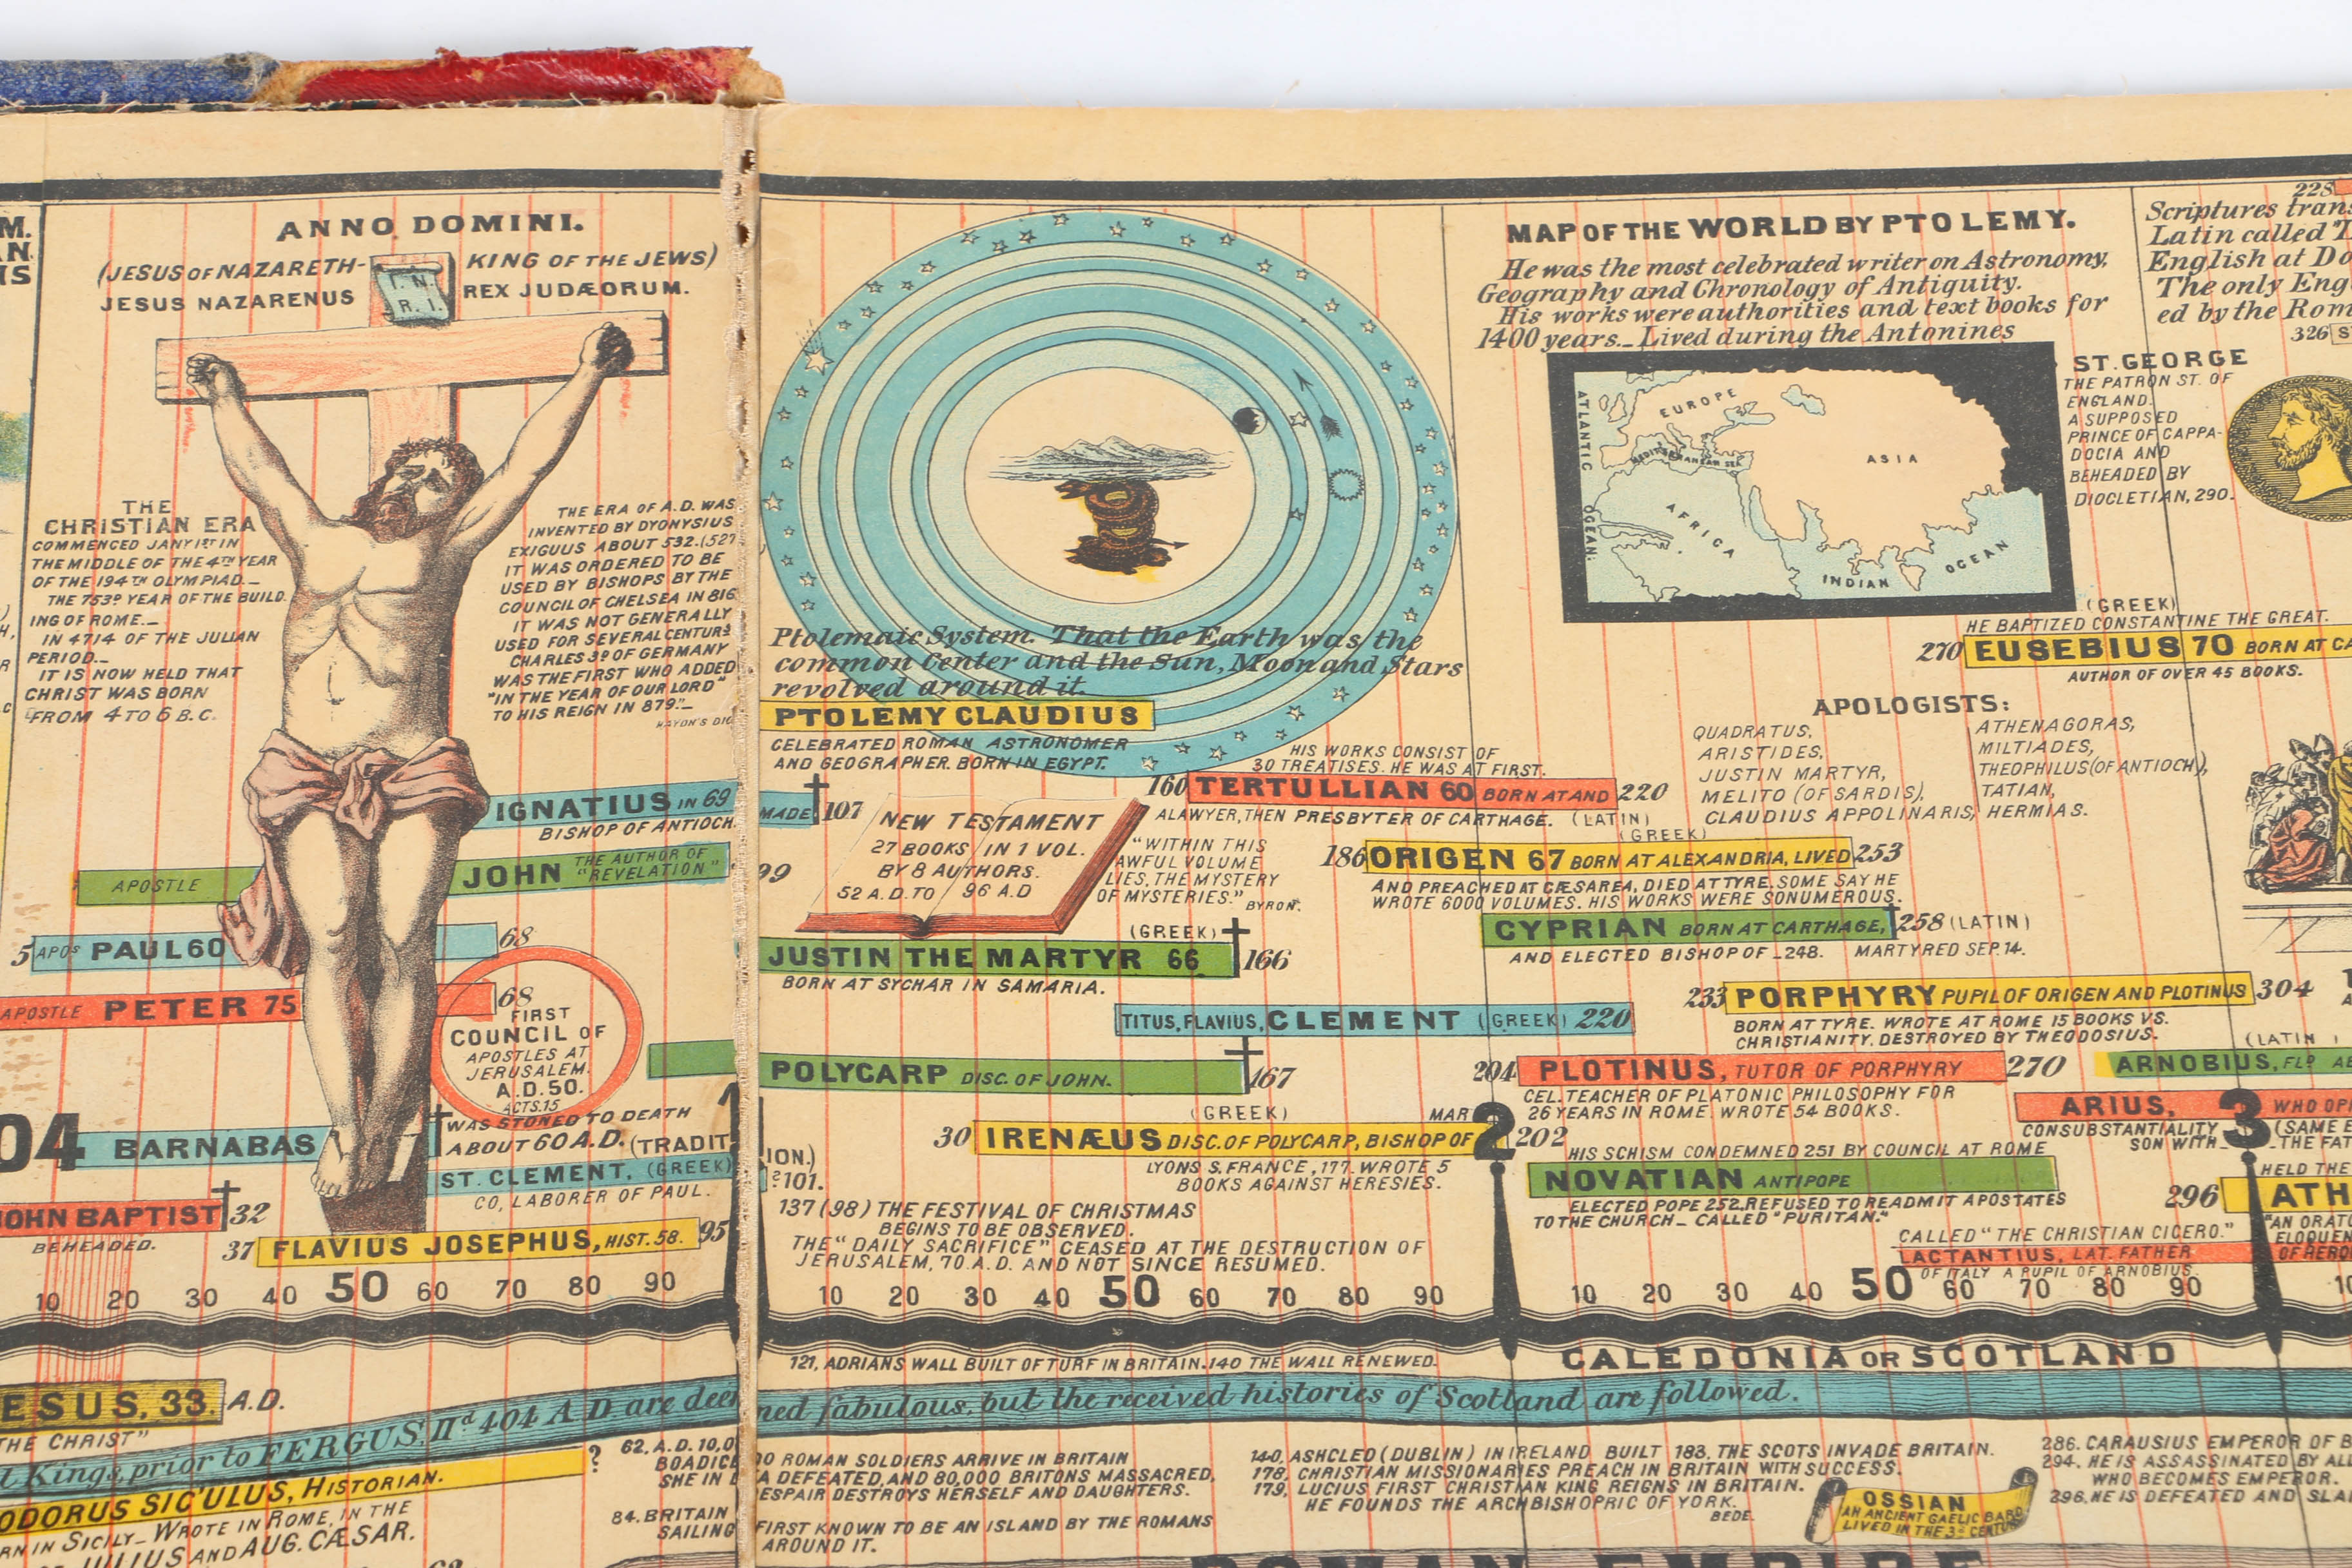 M.
AN.
IS
ANNO DOMINI.
(JESUS OF NAZARETH-
KING OF THE JEWS)
JESUS NAZARENUS
REX JUDÆORUM.
I. N.
R. I.
THE
CHRISTIAN ERA
COMMENCED JANY 1ST IN
THE MIDDLE OF THE 4TH YEAR
OF THE 194TH OLYMPIAD._
THE 753D YEAR OF THE BUILD.
ING OF ROME._
IN 4714 OF THE JULIAN
PERIOD._
IT IS NOW HELD THAT
CHRIST WAS BORN
FROM 4 TO 6 B.C.
THE ERA OF A.D. WAS
INVENTED BY DYONYSIUS
EXIGUUS ABOUT 532.(527
IT WAS ORDERED TO BE
USED BY BISHOPS BY THE
COUNCIL OF CHELSEA IN 816
IT WAS NOT GENERALLY
USED FOR SEVERAL CENTURS
CHARLES 3D OF GERMANY
WAS THE FIRST WHO ADDED
"IN THE YEAR OF OUR LORD"
TO HIS REIGN IN 879."_
HAYDN'S DIC
IGNATIUS IN 69
BISHOP OF ANTIOCH
MADE 107
APOSTLE
JOHN THE AUTHOR OF
"REVELATION"
99
5 APOS PAUL 60
68
APOSTLE PETER 75
68
FIRST
COUNCIL OF
APOSTLES AT
JERUSALEM.
A.D.50.
ACTS.15
04
BARNABAS
WAS STONED TO DEATH
ABOUT 60 A.D. (TRADIT
ION.)
ST. CLEMENT. (GREEK)
?101.
CO, LABORER OF PAUL.
OHN BAPTIST 32
BEHEADED.
37 FLAVIUS JOSEPHUS, HIST. 58. 95
10 20 30 40 50 60 70 80 90
1
Ptolemaic System. That the Earth was the
common Center and the Sun, Moon and Stars
revolved around it.
PTOLEMY CLAUDIUS
CELEBRATED ROMAN ASTRONOMER
AND GEOGRAPHER. BORN IN EGYPT.
MAP OF THE WORLD BY PTOLEMY.
He was the most celebrated writer on Astronomy,
Geography and Chronology of Antiquity.
His works were authorities and text books for
1400 years._ Lived during the Antonines
ATLANTIC
OCEAN.
EUROPE
MEDITERRANEAN SEA
ASIA
AFRICA
INDIAN
OCEAN
228
Scriptures trans
Latin called
English at Do
The only Eng
ed by the Rom
326
ST. GEORGE
THE PATRON ST. OF
ENGLAND.
A SUPPOSED
PRINCE OF CAPPA-
DOCIA AND
BEHEADED BY
DIOCLETIAN, 290.
(GREEK)
HE BAPTIZED CONSTANTINE THE GREAT.
270 EUSEBIUS 70 BORN AT CA
AUTHOR OF OVER 45 BOOKS.
APOLOGISTS:
QUADRATUS,
ARISTIDES,
JUSTIN MARTYR,
MELITO (OF SARDIS),
CLAUDIUS APPOLINARIS,
ATHENAGORAS,
MILTIADES,
THEOPHILUS (OF ANTIOCH),
TATIAN,
HERMIAS.
HIS WORKS CONSIST OF
30 TREATISES. HE WAS AT FIRST.
160 TERTULLIAN 60 BORN AT AND 220
A LAWYER, THEN PRESBYTER OF CARTHAGE. (LATIN)
NEW TESTAMENT
27 BOOKS IN 1 VOL.
BY 8 AUTHORS.
52 A.D. TO 96 A.D
"WITHIN THIS
AWFUL VOLUME
LIES, THE MYSTERY
OF MYSTERIES."
BYRON.
(GREEK)
186 ORIGEN 67 BORN AT ALEXANDRIA, LIVED 253
AND PREACHED AT CÆSAREA, DIED AT TYRE. SOME SAY HE
WROTE 6000 VOLUMES. HIS WORKS WERE SO NUMEROUS.
CYPRIAN BORN AT CARTHAGE, 258 (LATIN)
AND ELECTED BISHOP OF _248. MARTYRED SEP. 14.
(GREEK)
JUSTIN THE MARTYR 66 166
BORN AT SYCHAR IN SAMARIA.
233 PORPHYRY PUPIL OF ORIGEN AND PLOTINUS 304
BORN AT TYRE. WROTE AT ROME 15 BOOKS VS.
CHRISTIANITY. DESTROYED BY THEODOSIUS.
TITUS, FLAVIUS, CLEMENT (GREEK) 220
(LATIN
POLYCARP DISC. OF JOHN. 167
(GREEK)
204 PLOTINUS, TUTOR OF PORPHYRY 270
CEL. TEACHER OF PLATONIC PHILOSOPHY FOR
26 YEARS IN ROME. WROTE 54 BOOKS.
ARNOBIUS, FLD
ARIUS,
WHO OP
CONSUBSTANTIALITY
(SAME E
SON WITH_
_THE FAT
MAR
30 IRENÆUS DISC. OF POLYCARP, BISHOP OF 202
LYONS S. FRANCE, 177. WROTE 5
BOOKS AGAINST HERESIES.
2
3
HIS SCHISM CONDEMNED 251 BY COUNCIL AT ROME
NOVATIAN ANTIPOPE
ELECTED POPE 252. REFUSED TO READMIT APOSTATES
TO THE CHURCH_ CALLED "PURITAN."
HELD THE
296 ATH
"AN ORAT
ELOQUEN
OF HERO
CALLED "THE CHRISTIAN CICERO."
LACTANTIUS, LAT. FATHER
OF ITALY A PUPIL OF ARNOBIUS.
137 (98) THE FESTIVAL OF CHRISTMAS
BEGINS TO BE OBSERVED.
THE "DAILY SACRIFICE" CEASED AT THE DESTRUCTION OF
JERUSALEM, 70. A.D. AND NOT SINCE RESUMED.
10 20 30 40 50 60 70 80 90
10 20 30 40 50 60 70 80 90
10
121, ADRIANS WALL BUILT OF TURF IN BRITAIN. 140 THE WALL RENEWED.
CALEDONIA OR SCOTLAND
ESUS, 33. A.D.
THE CHRIST"
t Kings, prior to FERGUS, IId 404 A.D. are deemed fabulous, but the received histories of Scotland are followed.
ODORUS SIC'ULUS, HISTORIAN.
?
RN IN SICILY_ WROTE IN ROME, IN THE
JULIUS AND AUG. CÆSAR.
62. A.D. 10,000 ROMAN SOLDIERS ARRIVE IN BRITAIN
BOADICEA DEFEATED, AND 80,000 BRITONS MASSACRED,
SHE IN DESPAIR DESTROYS HERSELF AND DAUGHTERS.
84. BRITAIN FIRST KNOWN TO BE AN ISLAND BY THE ROMANS
SAILING AROUND IT.
140, ASHCLED (DUBLIN) IN IRELAND BUILT 183. THE SCOTS INVADE BRITAIN.
178, CHRISTIAN MISSIONARIES PREACH IN BRITAIN WITH SUCCESS.
179, LUCIUS FIRST CHRISTIAN KING REIGNS IN BRITAIN.
HE FOUNDS THE ARCHBISHOPRIC OF YORK.
BEDE.
OSSIAN
AN ANCIENT GAELIC BARD
LIVED IN THE 3D CENTURY
286. CARAUSIUS EMPEROR OF B
294. HE IS ASSASSINATED BY ALL
WHO BECOMES EMPEROR.
296. HE IS DEFEATED AND SLA
ROMAN EMPIRE